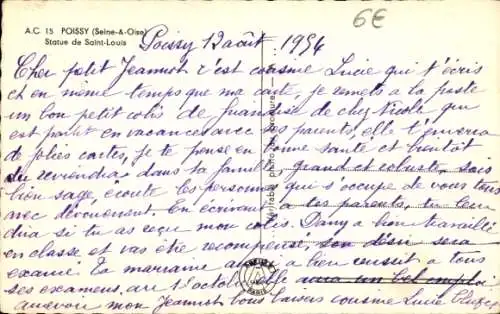 A.C. 15 POISSY (Seine-&-Oise)
Statue de Saint-Louis
6€
Poissy 12 août 1954
Cher petit Jeannot c'est cousine Lucie qui t'écris
et en même temps que ma carte, je remets à la poste
un bon petit colis de friandise de chez Nicole qui
est parti en vacances avec ses parents, elle t'enverra
de jolies cartes, je te pense en bonne santé et bientôt
tu reviendra dans ta famille, grand et robuste, sois
bien sage, écoute les personnes qui s'occupe de vous tous
avec dévouement. En écrivant à tes parents, tu leur
dira si tu as reçu mon colis. Dany a bien travaillé
en classe et vas être récompensé, son désir sera
exaucé. Ta marraine aussi a bien réussit a tous
ses examens, au 1er octobre elle aura un bel emploi
au revoir mon Jeannot bons baisers cousine Lucie
Véritable photo